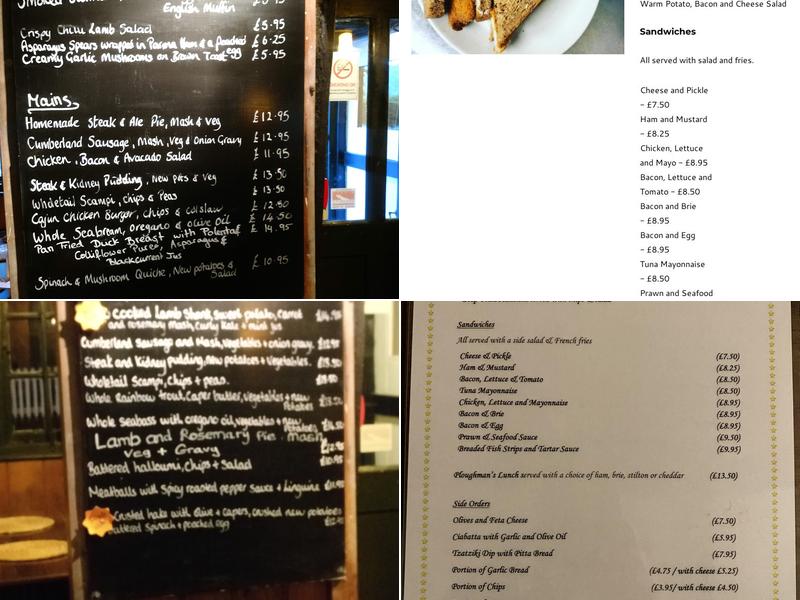 English Muffin £5.95
Crispy Chilli Lamb Salad £5.95
Asparagus Spears wrapped in Parma Ham & a Poached egg £6.25
Creamy Garlic Mushrooms on Brown Toast £5.95
Mains
Homemade Steak & Ale Pie, Mash & Veg £12.95
Cumberland Sausage, Mash, Veg & Onion Gravy £12.95
Chicken, Bacon & Avocado Salad £11.95
Steak & Kidney Pudding, New pots & Veg £13.50
Wholetail Scampi, Chips & Peas £13.50
Cajun Chicken Burger, Chips & Colslaw £12.50
Whole Seabream, oregano & olive Oil £14.50
Pan Fried Duck Breast with Polenta, £14.95
Coliflower Puree, Asparagus &
Blackcurrant Jus
Spinach & Mushroom Quiche, New potatoes & £10.95
Salad
Warm Potato, Bacon and Cheese Salad
Sandwiches
All served with salad and fries.
Cheese and Pickle
– £7.50
Ham and Mustard
– £8.25
Chicken, Lettuce
and Mayo – £8.95
Bacon, Lettuce and
Tomato – £8.50
Bacon and Brie
– £8.95
Bacon and Egg
– £8.95
Tuna Mayonnaise
– £8.50
Prawn and Seafood
cooked Lamb Shank, Sweet potato, Carrot
and rosemary mash, Curly Kale + mint jus
Cumberland sausage and Mash, vegetables + onion gravy.
Steak and Kidney pudding, new potatoes + vegetables.
Wholetail Scampi, Chips + peas.
Whole Rainbow trout, Caper butter, vegetables + new
Potatoes
Whole seabass with oregano oil, vegetables + new
Potatoes
Lamb and Rosemary Pie, Mash
Veg + Gravy
Battered halloumi, Chips + Salad
Meatballs with Spicy roasted pepper sauce + Linguine
Crusted hake with olive + capers, crushed new potatoes
buttered Spinach + poached egg
Sandwiches
All served with a side salad & French fries
Cheese & Pickle (£7.50)
Ham & Mustard (£8.25)
Bacon, Lettuce & Tomato (£8.50)
Tuna Mayonnaise (£8.50)
Chicken, Lettuce and Mayonnaise (£8.95)
Bacon & Brie (£8.95)
Bacon & Egg (£8.95)
Prawn & Seafood Sauce (£9.50)
Breaded Fish Strips and Tartar Sauce (£9.95)
Ploughman's Lunch served with a choice of ham, brie, stilton or cheddar (£13.50)
Side Orders
Olives and Feta Cheese (£7.50)
Ciabatta with Garlic and Olive Oil (£5.95)
Tzatziki Dip with Pitta Bread (£7.95)
Portion of Garlic Bread (£4.75 / with cheese £5.25)
Portion of Chips (£3.95/ with cheese £4.50)